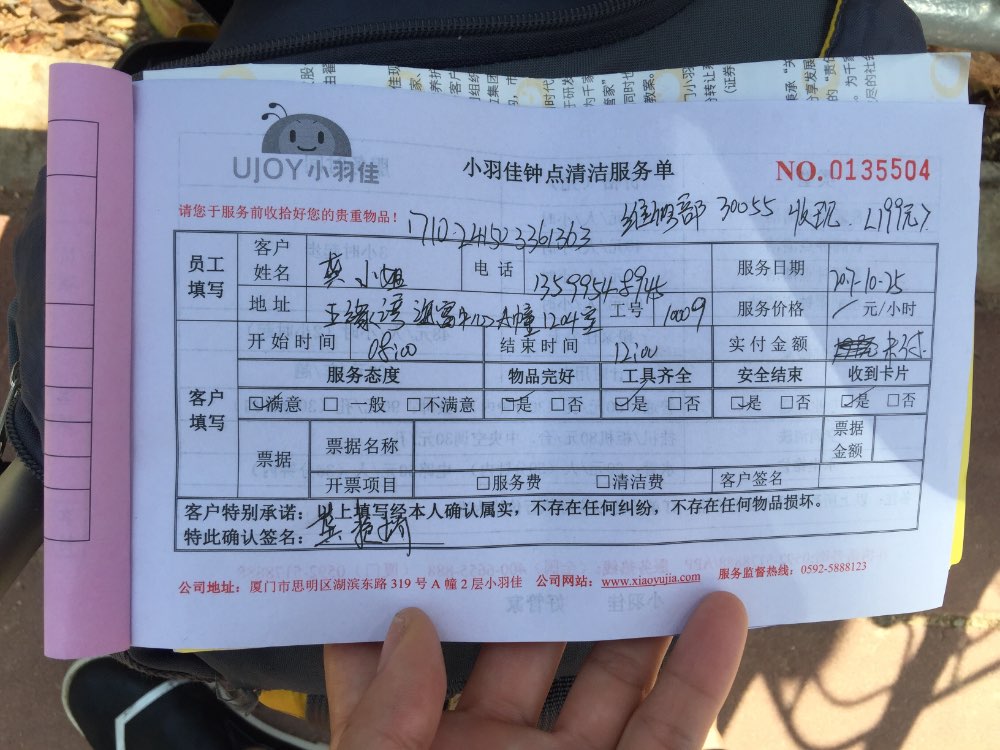 UJOY小羽佳
小羽佳钟点清洁服务单
NO. 0135504
请您于服务前收拾好您的贵重物品！
维修部 30055 收现 (199元)
员工填写 客户姓名 小姐 电话 13599548945 服务日期 2017-10-25
地址 A幢1204室 工号 10009 服务价格 元/小时
客户填写 开始时间 08:00 结束时间 12:00 实付金额
服务态度 物品完好 工具齐全 安全结束 收到卡片
☑满意 □一般 □不满意 ☑是 □否 ☑是 □否 ☑是 □否 ☑是 □否
票据 票据名称 票据金额
开票项目 □服务费 □清洁费 客户签名
客户特别承诺：以上填写经本人确认属实，不存在任何纠纷，不存在任何物品损坏。
特此确认签名：
公司地址：厦门市思明区湖滨东路 319 号 A 幢 2 层小羽佳 公司网站：www.xiaoyujia.com 服务监督热线：0592-5888123